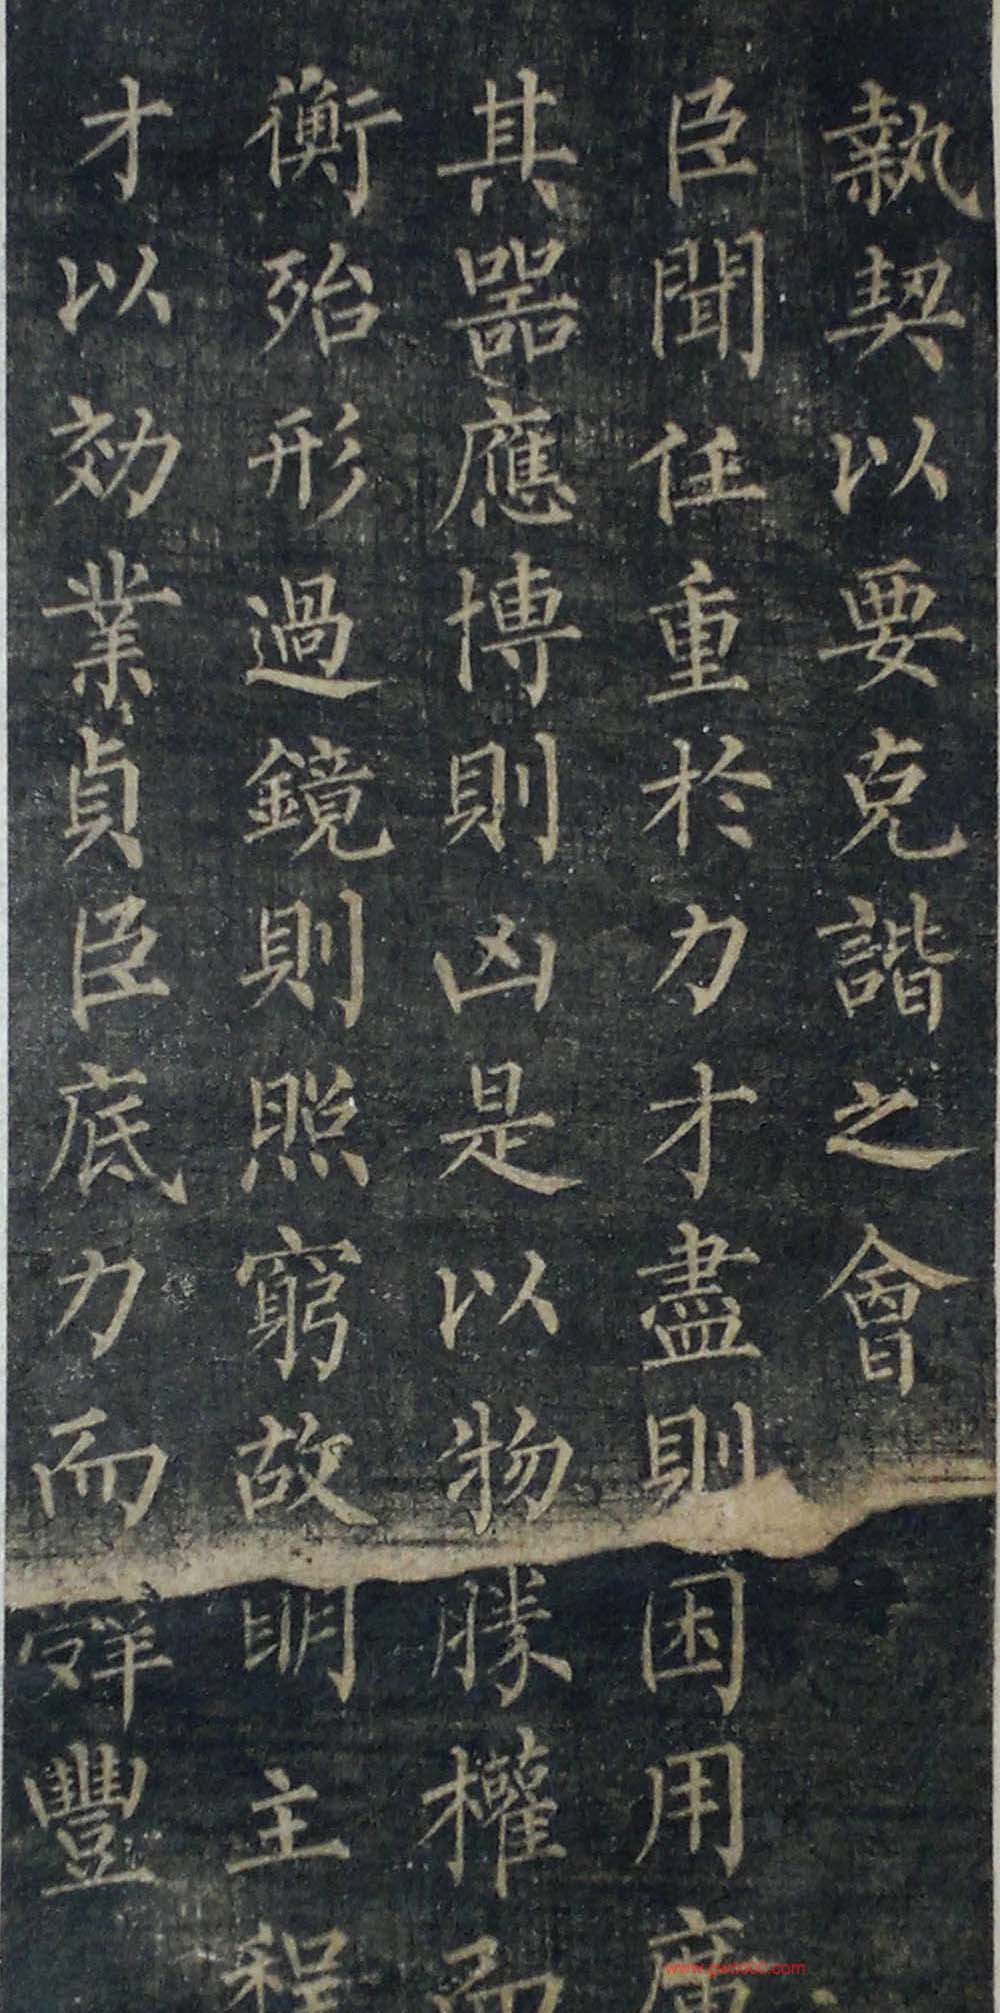 執契以要克諧之會
臣聞任重於力才盡則困用廣
其器應博則凶是以物勝權而
衡殆形過鏡則照窮故明主程
才以効業貞臣底力而辤豐